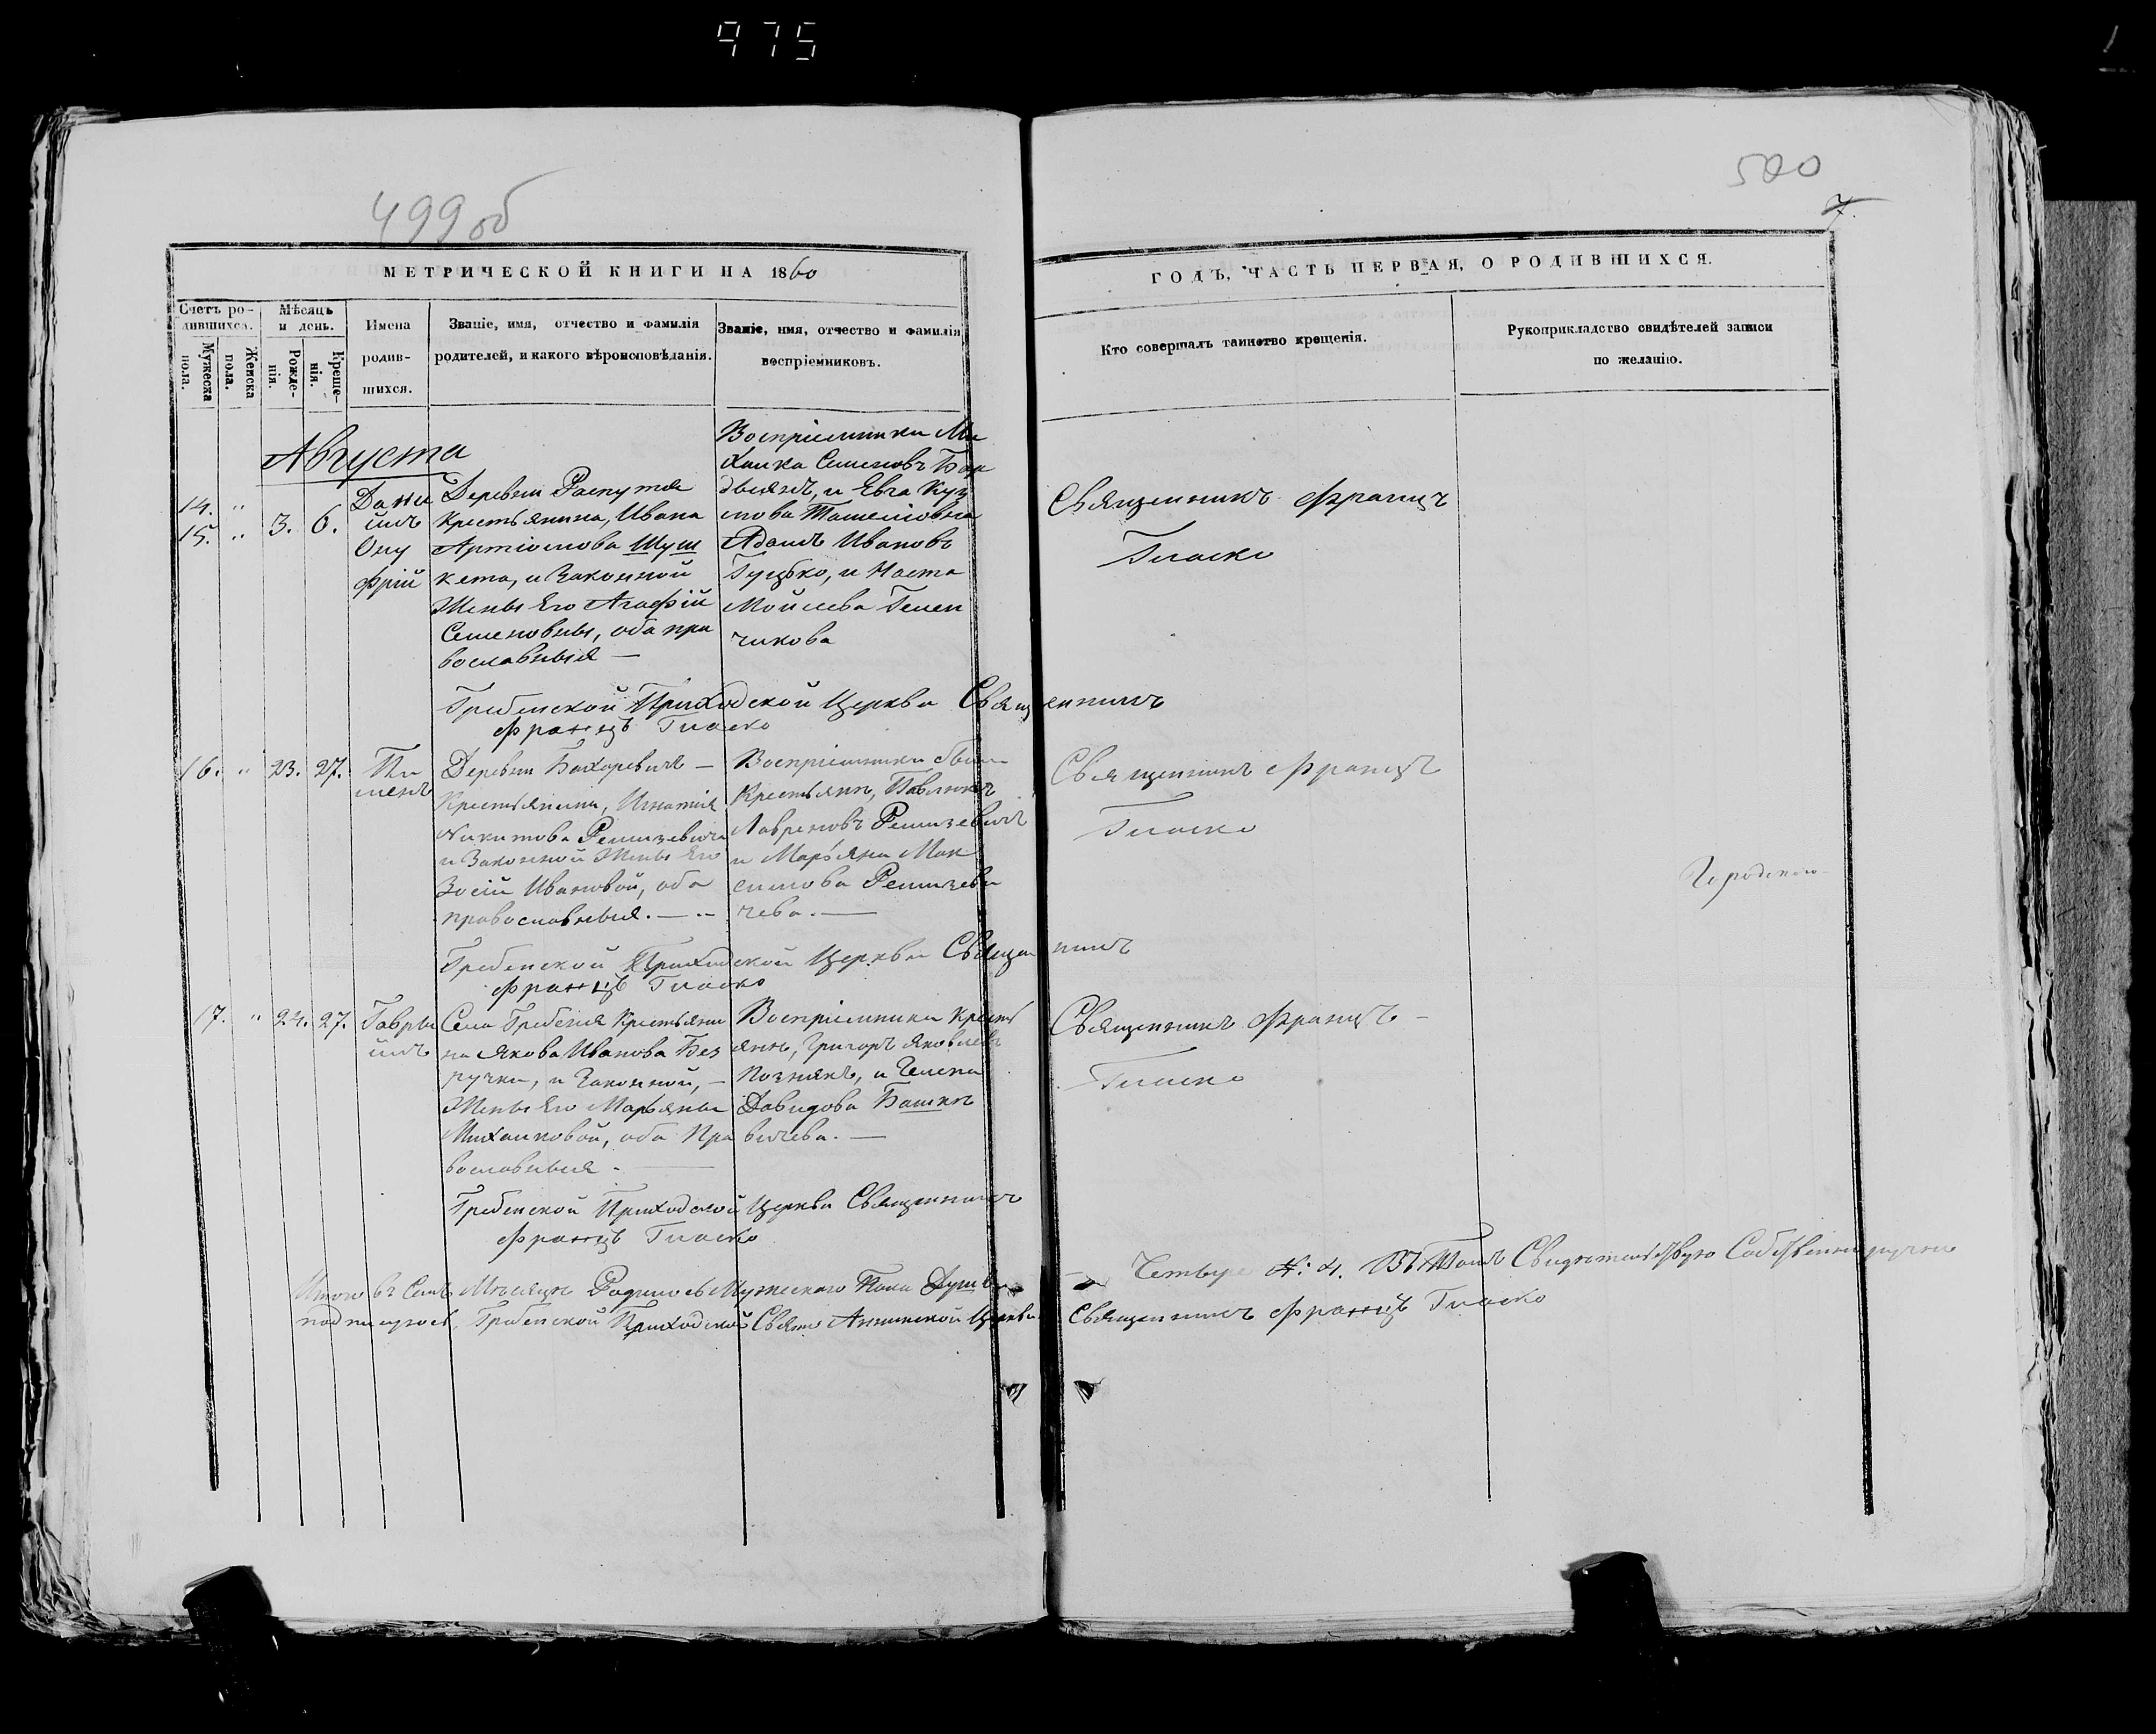 975
499 об
500
7.
МЕТРИЧЕСКОЙ КНИГИ НА 1860
ГОДЪ, ЧАСТЬ ПЕРВАЯ, О РОДИВШИХСЯ.
Счетъ ро-
дившихся.
Мужеска
пола.
Женска
пола.
Мѣсяцъ
и день.
Рожде-
нія.
Креще-
нія.
Имена
родив-
шихся.
Званіе, имя, отчество и фамилія
родителей, и какого вѣроисповѣданія.
Званіе, имя, отчество и фамилія
воспріемниковъ.
Кто совершалъ таинство крещенія.
Рукоприкладство свидѣтелей записи
по желанію.
Августа
14. "
15. "
3. 6.
Дани
илъ
Ону
фрій
Деревни Распутья
Крестьянина, Ивана
Артіомова Шуш
кета, и Законной
Жены Его Агафій
Семеновны, оба пра
вославныя —
Воспріемники Ми
халка Семеновъ Бар
и Евга Куз
мова
Адамъ Ивановъ
Гуцько, и Наста
Мойсева Гемен
чикова
Священникъ Францъ
Гласко
Гребенской Приходской Церкви Священникъ
Францъ Гласко
16. " 23. 27.
Пи
менъ
Деревни Бахаревичъ —
Крестьянина, Игнатія
Никитова Ремизевича
и Законной Жены Его
Зосій Ивановой, оба
православныя. —
Воспріемники были
Крестьяне, Павлюкъ
Лавреновъ Ремизевичъ
и Марьяна Мак
симова Ремизеви
чева. —
Священникъ Францъ
Гласко
Гребенской Приходской Церкви Священникъ
Францъ Гласко
17. " 24. 27.
Гаври
илъ
Села Гребеня Крестьяни
на Якова Иванова Без
ручки, и Законной, —
Жены Его Марьяны
Михалковой, оба Пра
вославныя. —
Воспріемники Кресть
яне, Григоръ Яковлевъ
Познякъ, и Гелена
Давидова Башке
вичева. —
Священникъ Францъ —
Гласко
Гребенской Приходской Церкви Священникъ
Францъ Гласко
Итого въ Семъ Мѣсяцѣ Родилось Мужескаго Пола Душъ Четыре №: 4. Въ Томъ Свидѣтельствую Собственноручно
подписуюсь, Гребенской Приходской Свято Аннинской Церкви Священникъ Францъ Гласко